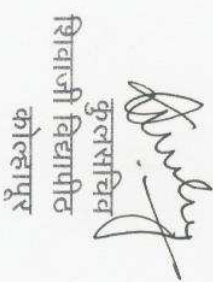 कुलसचिव
शिवाजी विद्यापीठ
कोल्हापूर